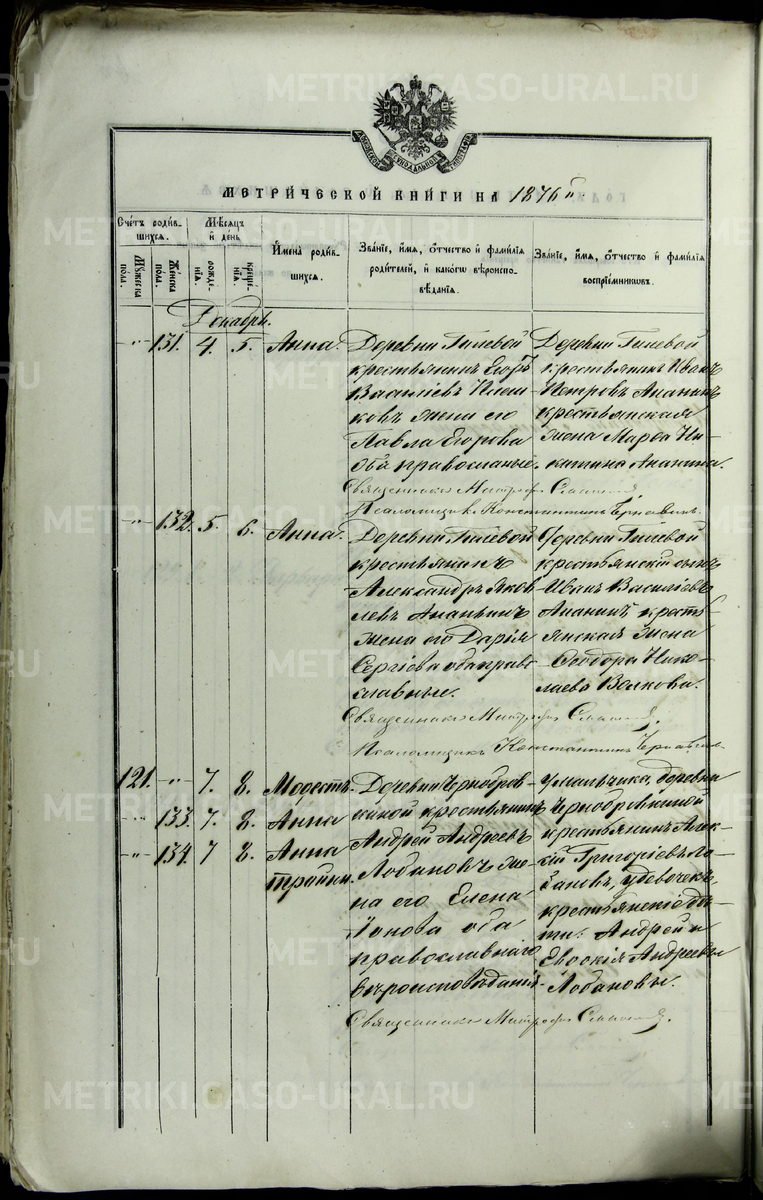 METRIKI.CASO-URAL.RU
МЕТРИЧЕСКОЙ КНИГИ НА 1876й
Счетъ родив-
шихся.
Мѣсяцъ
и день
Мужеска
пола.
Женска
пола.
рожде-
нія.
креще-
нія.
Имена родив-
шихся.
Званіе, имя, отчество и фамилія
родителей, и какого вѣроиспо-
вѣданія.
Званіе, имя, отчество и фамилія
воспріемниковъ.
Декабрь.
-"- 131. 4. 5. Анна.
Деревни Гилевой
крестьянинъ Егоръ
Василіевъ
жена его
Павла Егорова
оба православные.
Деревни Гилевой
крестьянинъ Иванъ
Петровъ Ананьинъ
крестьянская
жена Марѳа Ни-
китина Ананина.
Священникъ Митроф.
Псаломщикъ Константинъ
-"- 132. 5. 6. Анна.
Деревни Гилевой
крестьянинъ
Александръ Яков
левъ Ананьинъ
жена его Дарія
Сергіева оба право
славные.
Деревни Гилевой
крестьянскій сынъ
Иванъ Василіевъ
Ананинъ, кресть-
янская жена
Ѳеодора Нико-
лаева Волкова.
Священникъ Митроф.
Псаломщикъ Константинъ
121. -"- 7. 8. Модестъ.
-"- 133. 7. 8. Анна
-"- 134. 7 8. Анна
тройни.
Деревни Чернобров-
киной крестьянинъ
Андрей Андреевъ
Лобановъ же-
на его Елена
Іонова оба
православнаго
вѣроисповѣданія.
У мальчика, деревни
Чернобровкиной
крестьянинъ Алек-
сій Григоріевъ Ло-
бановъ, у девочекъ,
крестьянскіе дѣ-
ти: Андрей и
Евдокія Андреевы
Лобановы.
Священникъ Митроф.